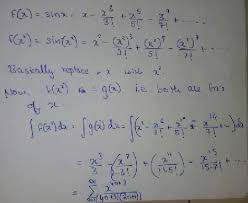 F(x) = sinx = x - x³/3! + x⁵/5! - x⁷/7! + .....
F(x²) = sin(x²) = x² - (x²)³/3! + (x²)⁵/5! - (x²)⁷/7! + ....
Basically replace x with x²
Now, f(x²) = g(x) i.e. both are fn's
of x.
∫F(x²)dx = ∫g(x)dx = ∫(x² - x⁶/3! + x¹⁰/5! - x¹⁴/7! + ....)dx
= x³/3 - (x⁷/7.3!) + (x¹¹/11.5!) - x¹⁵/15.7! + ....